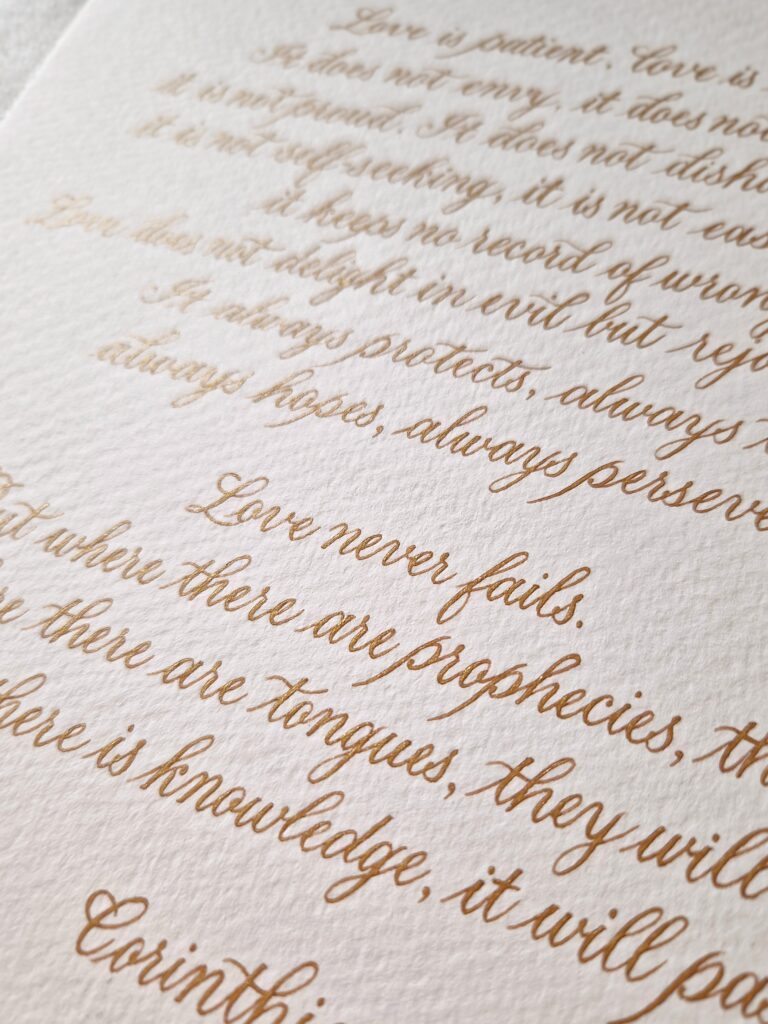 Love is patient, Love is
It does not envy, it does not
It is not proud. It does not disho
it is not self-seeking, it is not eas
it keeps no record of wrong
Love does not delight in evil but rejo
It always protects, always t
always hopes, always perseve
Love never fails.
ut where there are prophecies, th
re there are tongues, they will
here is knowledge, it will pas
Corinthi